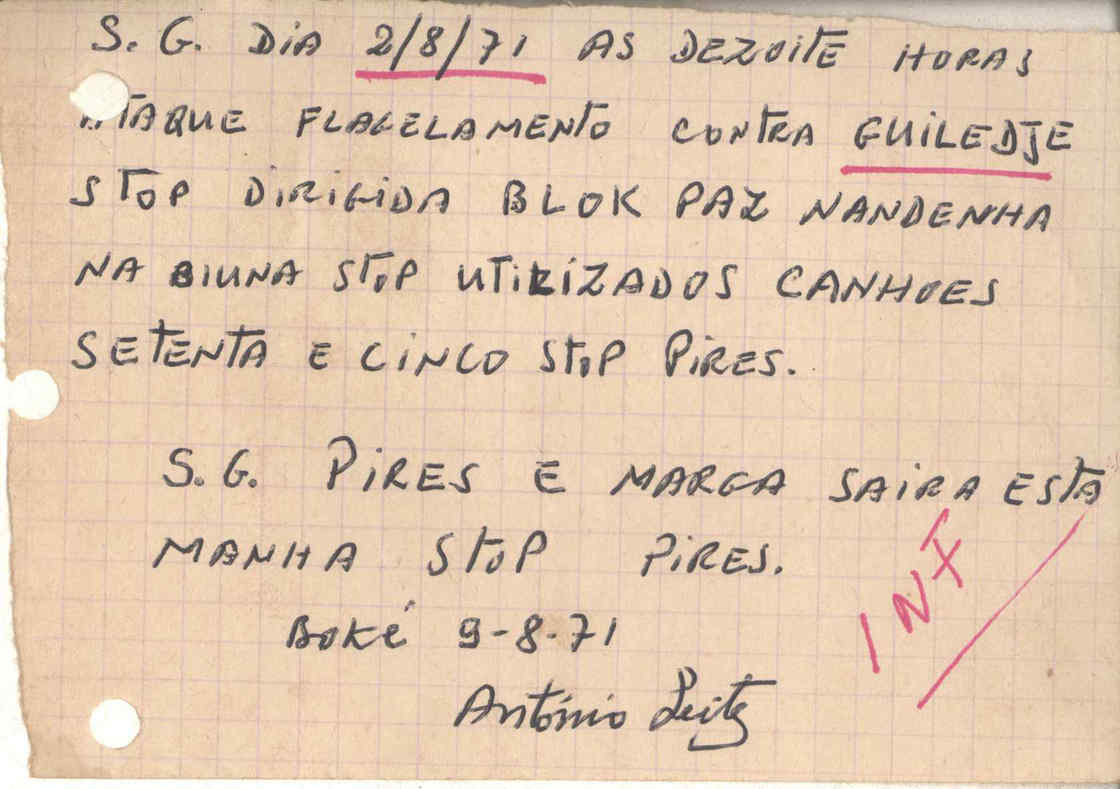 S. G. DIA 2/8/71 AS DEZOITE HORAS
ATAQUE FLAGELAMENTO CONTRA GUILEDJE
STOP DIRIGIDA BLOK PAZ NANDENHA
NA BIUNA STOP UTILIZADOS CANHOES
SETENTA E CINCO STOP PIRES.
S. G. PIRES E MARGA SAIRA ESTA
MANHA STOP PIRES.
INF
BOKÉ 9-8-71
António Leite